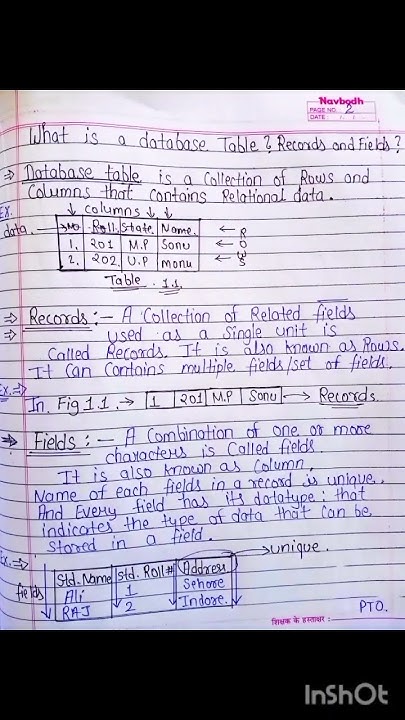 Navbodh
PAGE NO. 2
DATE: / /
What is a database Table? Records and Fields?
⇒ Database table is a Collection of Rows and
Columns that contains Relational data.
Ex. ↓ columns ↓ ↓
data. → No Roll. State. Name. ← R
1. 201 M.P Sonu ← O W
2. 202. U.P monu ← S
Table 1.1.
⇒ Records:- A Collection of Related fields
⇒ used as a Single unit is
Called Records. It is also known as Rows.
It Can Contains multiple fields/set of fields.
Ex.⇒
In Fig 1.1. → 1 201 M.P Sonu → Records.
⇒ Fields:- A Combination of one or more
characters is Called fields.
It is also known as Column.
Name of each fields in a record is unique.
And Every field has its datatype: that
indicates the type of data that can be
stored in a field.
Ex.⇒ → unique.
fields Std. Name std. Roll# Address
Ali 1 Sehore
RAJ 2 Indore.
शिक्षक के हस्ताक्षर : PTO.
InShOt